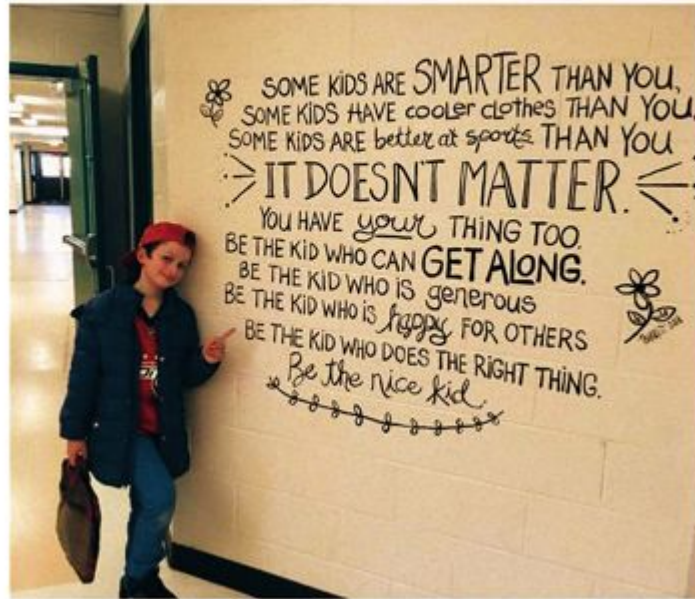 SOME KIDS ARE SMARTER THAN YOU,
SOME KIDS HAVE cooler clothes THAN YOU,
SOME KIDS ARE better at sports THAN YOU
IT DOESN'T MATTER.
YOU HAVE your THING TOO.
BE THE KID WHO CAN GET ALONG.
BE THE KID WHO IS generous
BE THE KID WHO IS happy FOR OTHERS
BE THE KID WHO DOES THE RIGHT THING.
Be the nice kid.